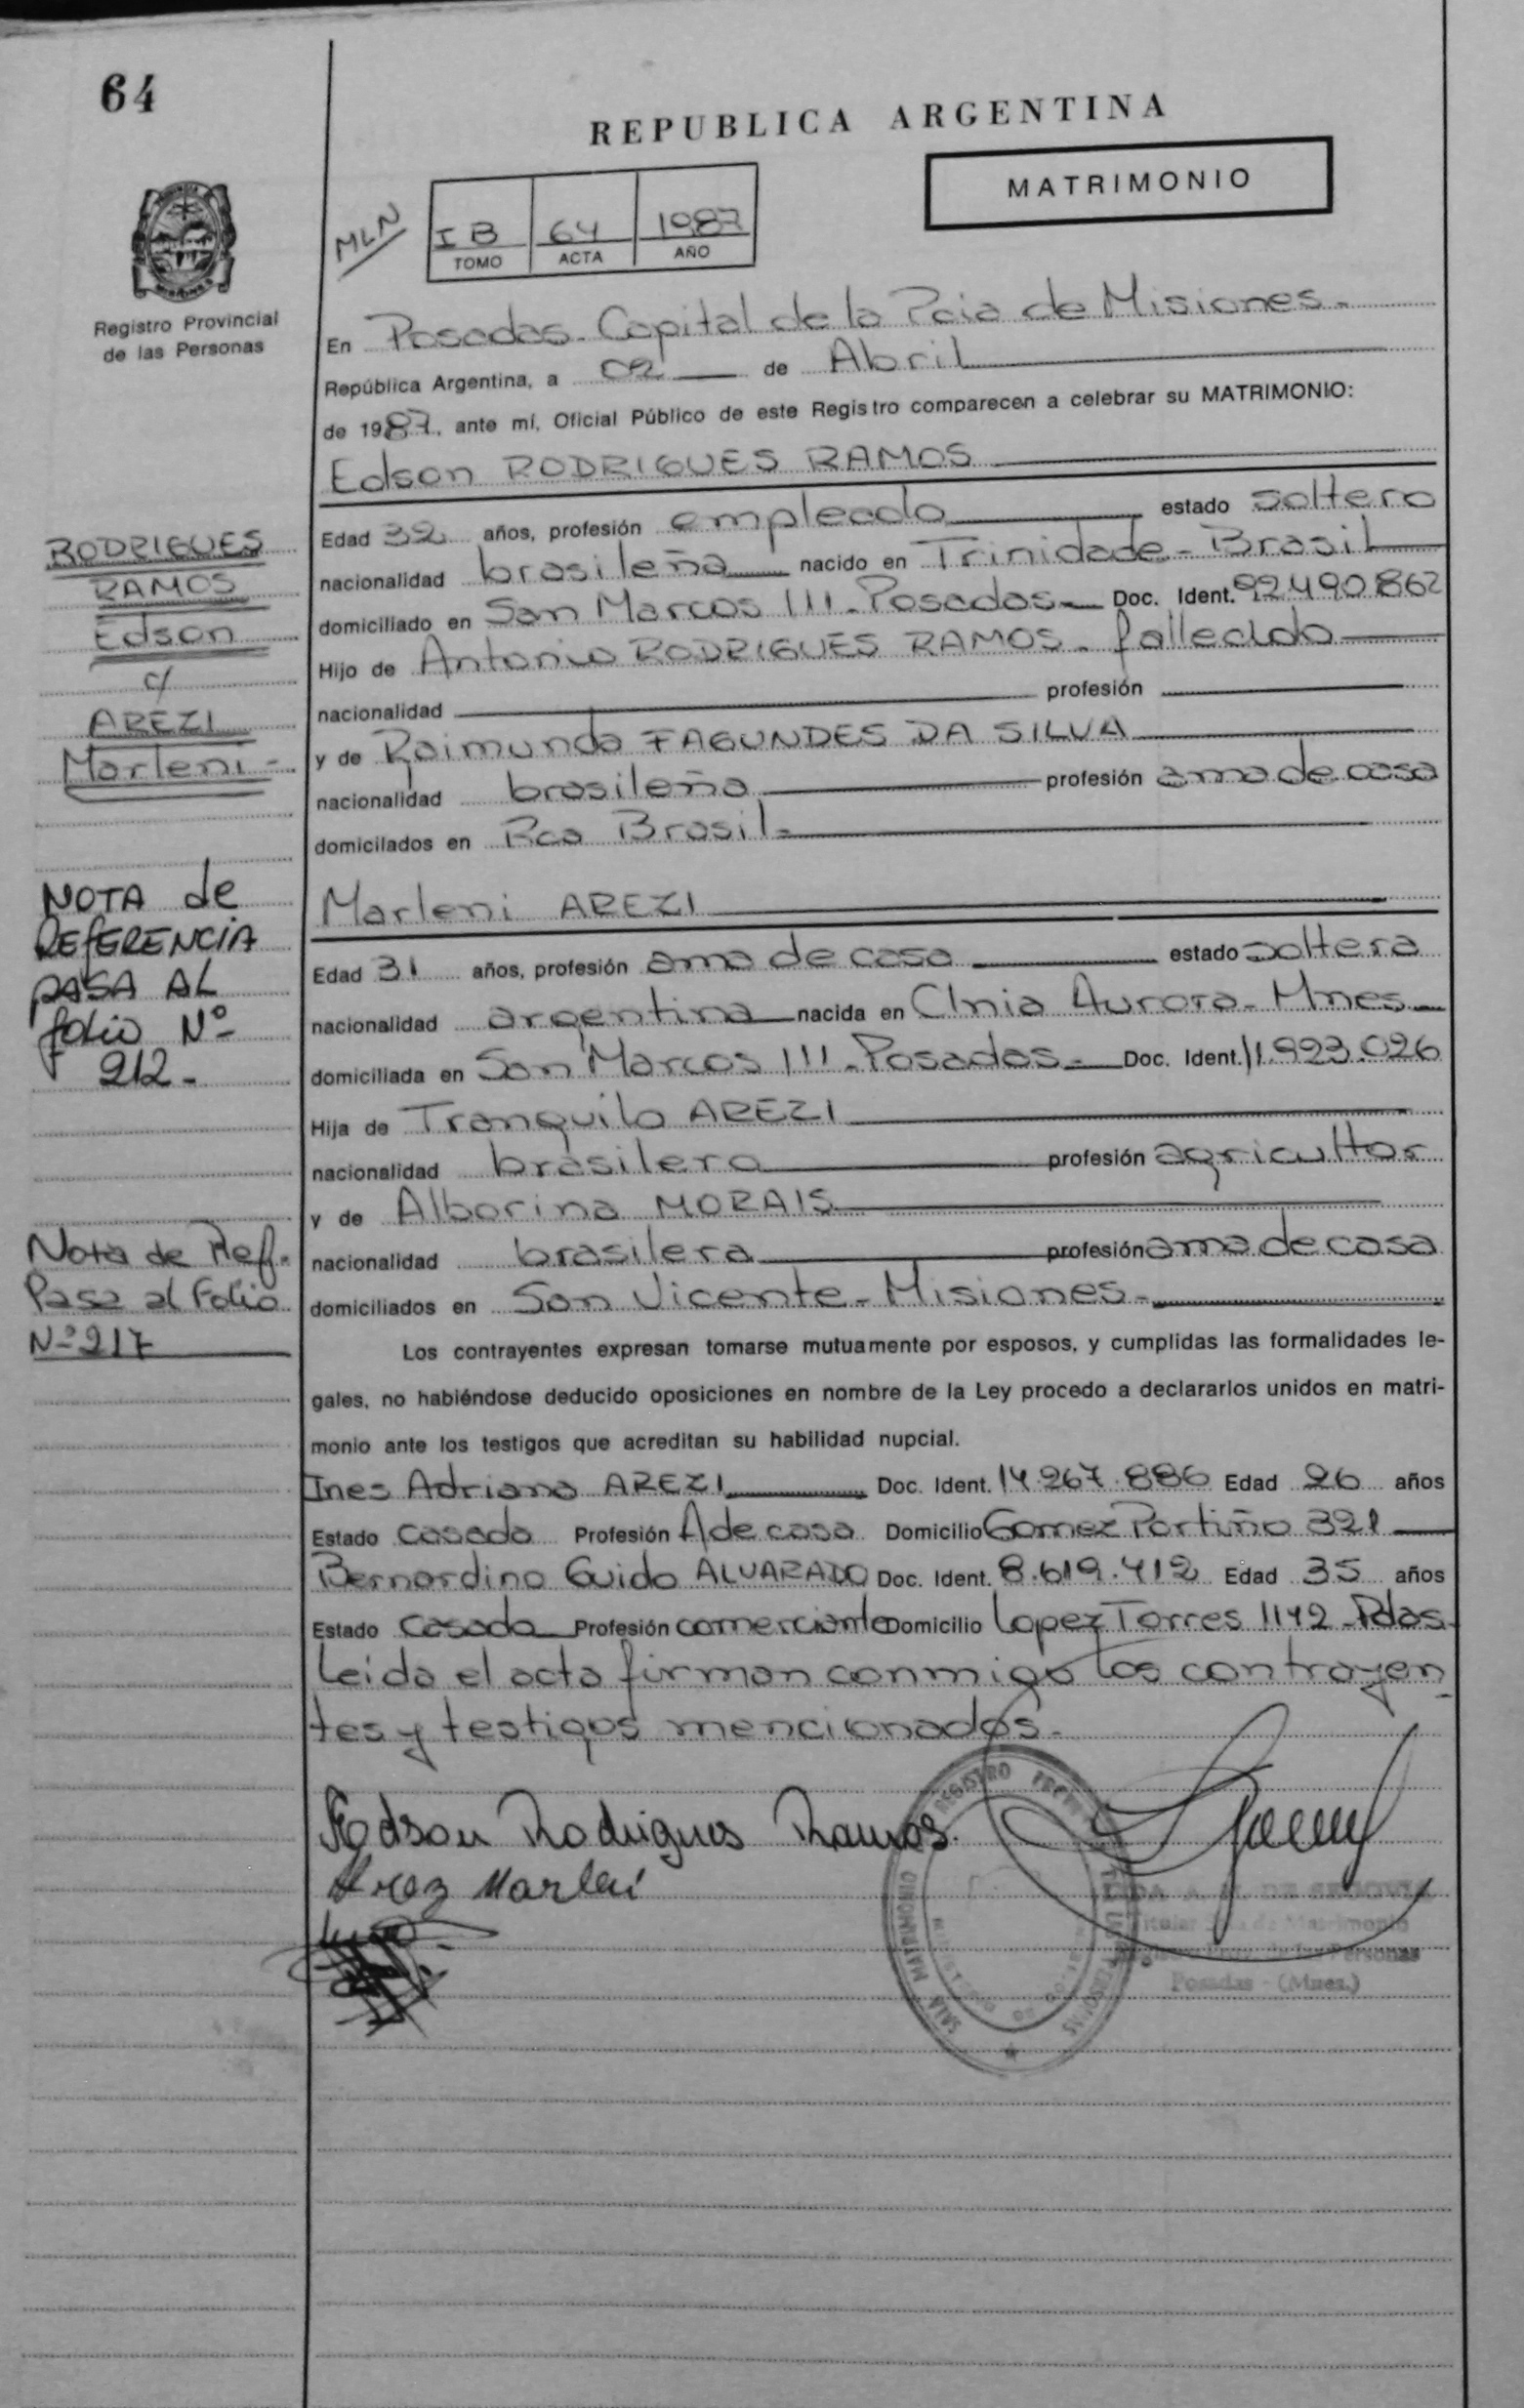 64
REPUBLICA ARGENTINA
MATRIMONIO
MLN
I B 64 1987
TOMO ACTA AÑO
Registro Provincial
de las Personas
En Posadas. Capital de la Pcia de Misiones.
República Argentina, a 02 de Abril
de 1987, ante mí, Oficial Público de este Registro comparecen a celebrar su MATRIMONIO:
Edson RODRIGUES RAMOS
Edad 32 años, profesión empleado estado soltero
nacionalidad brasileña nacido en Trinidade - Brasil
domiciliado en San Marcos 111 - Posadas - Doc. Ident. 92490862
Hijo de Antonio RODRIGUES RAMOS - fallecido
nacionalidad profesión
y de Raimunda FAGUNDES DA SILVA
nacionalidad brasileña profesión ama de casa
domicilados en Rca Brasil -
RODRIGUES
RAMOS
Edson
c/
AREZI
Marleni -
Marleni AREZI
Edad 31 años, profesión ama de casa estado soltera
nacionalidad argentina nacida en Clnia Aurora - Mnes
domiciliada en San Marcos 111 - Posadas - Doc. Ident. 11.993.026
Hija de Tranquilo AREZI
nacionalidad brasilera profesión agricultor
y de Alborina MORAIS
nacionalidad brasilera profesión ama de casa
domiciliados en San Vicente - Misiones -
NOTA de
REfERENCIA
PASA AL
folio Nº
212 -
Nota de Ref.
Pasa al Folio
Nº 217
Los contrayentes expresan tomarse mutuamente por esposos, y cumplidas las formalidades le-
gales, no habiéndose deducido oposiciones en nombre de la Ley procedo a declararlos unidos en matri-
monio ante los testigos que acreditan su habilidad nupcial.
Ines Adriana AREZI Doc. Ident. 14.267.886 Edad 26 años
Estado casada Profesión A de casa Domicilio Gomez Portiño 321
Bernardino Guido ALVARADO Doc. Ident. 8.619.412 Edad 35 años
Estado casado Profesión comerciante Domicilio Lopez Torres 1142 - Pdas -
Leida el acta firman conmigo los contrayen
tes y testigos mencionados -
Edson Rodrigues Ramos.
Arez Marleni
REGISTRO
SALA MATRIMONIO
A. DE SEGOVIA
Titular de Matrimonio
de las Personas
Posadas - (Mnes.)